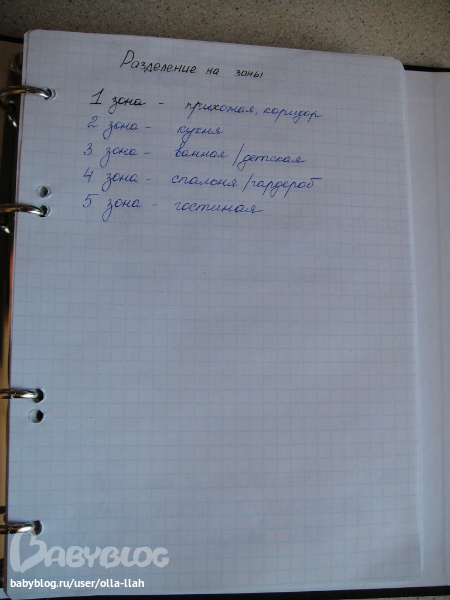 Разделение на зоны
1 зона - прихожая, коридор
2 зона - кухня
3 зона - ванная/детская
4 зона - спальня/гардероб
5 зона - гостиная
BABYBLOG
babyblog.ru/user/olla-llah